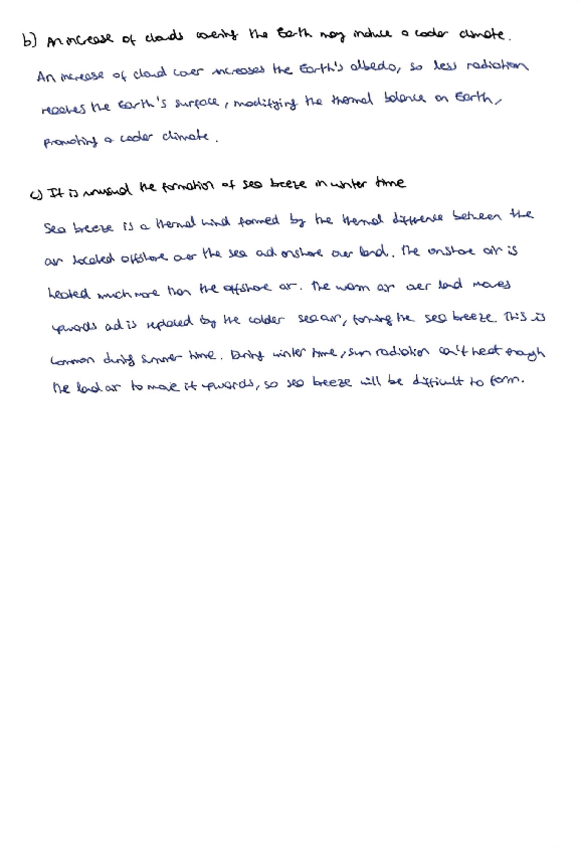 b) An increase of clouds covering the Earth may induce a cooler climate.
An increase of cloud cover increases the Earth's albedo, so less radiation
reaches the Earth's surface, modifying the thermal balance on Earth,
promoting a cooler climate.
c) It is unusual the formation of sea breeze in winter time
Sea breeze is a thermal wind formed by the thermal difference between the
air located offshore over the sea and onshore over land. The onshore air is
heated much more than the offshore air. The warm air over land moves
upwards and is replaced by the colder sea air, forming the sea breeze. This is
common during summer time. During winter time, sun radiation can't heat enough
the land air to move it upwards, so sea breeze will be difficult to form.